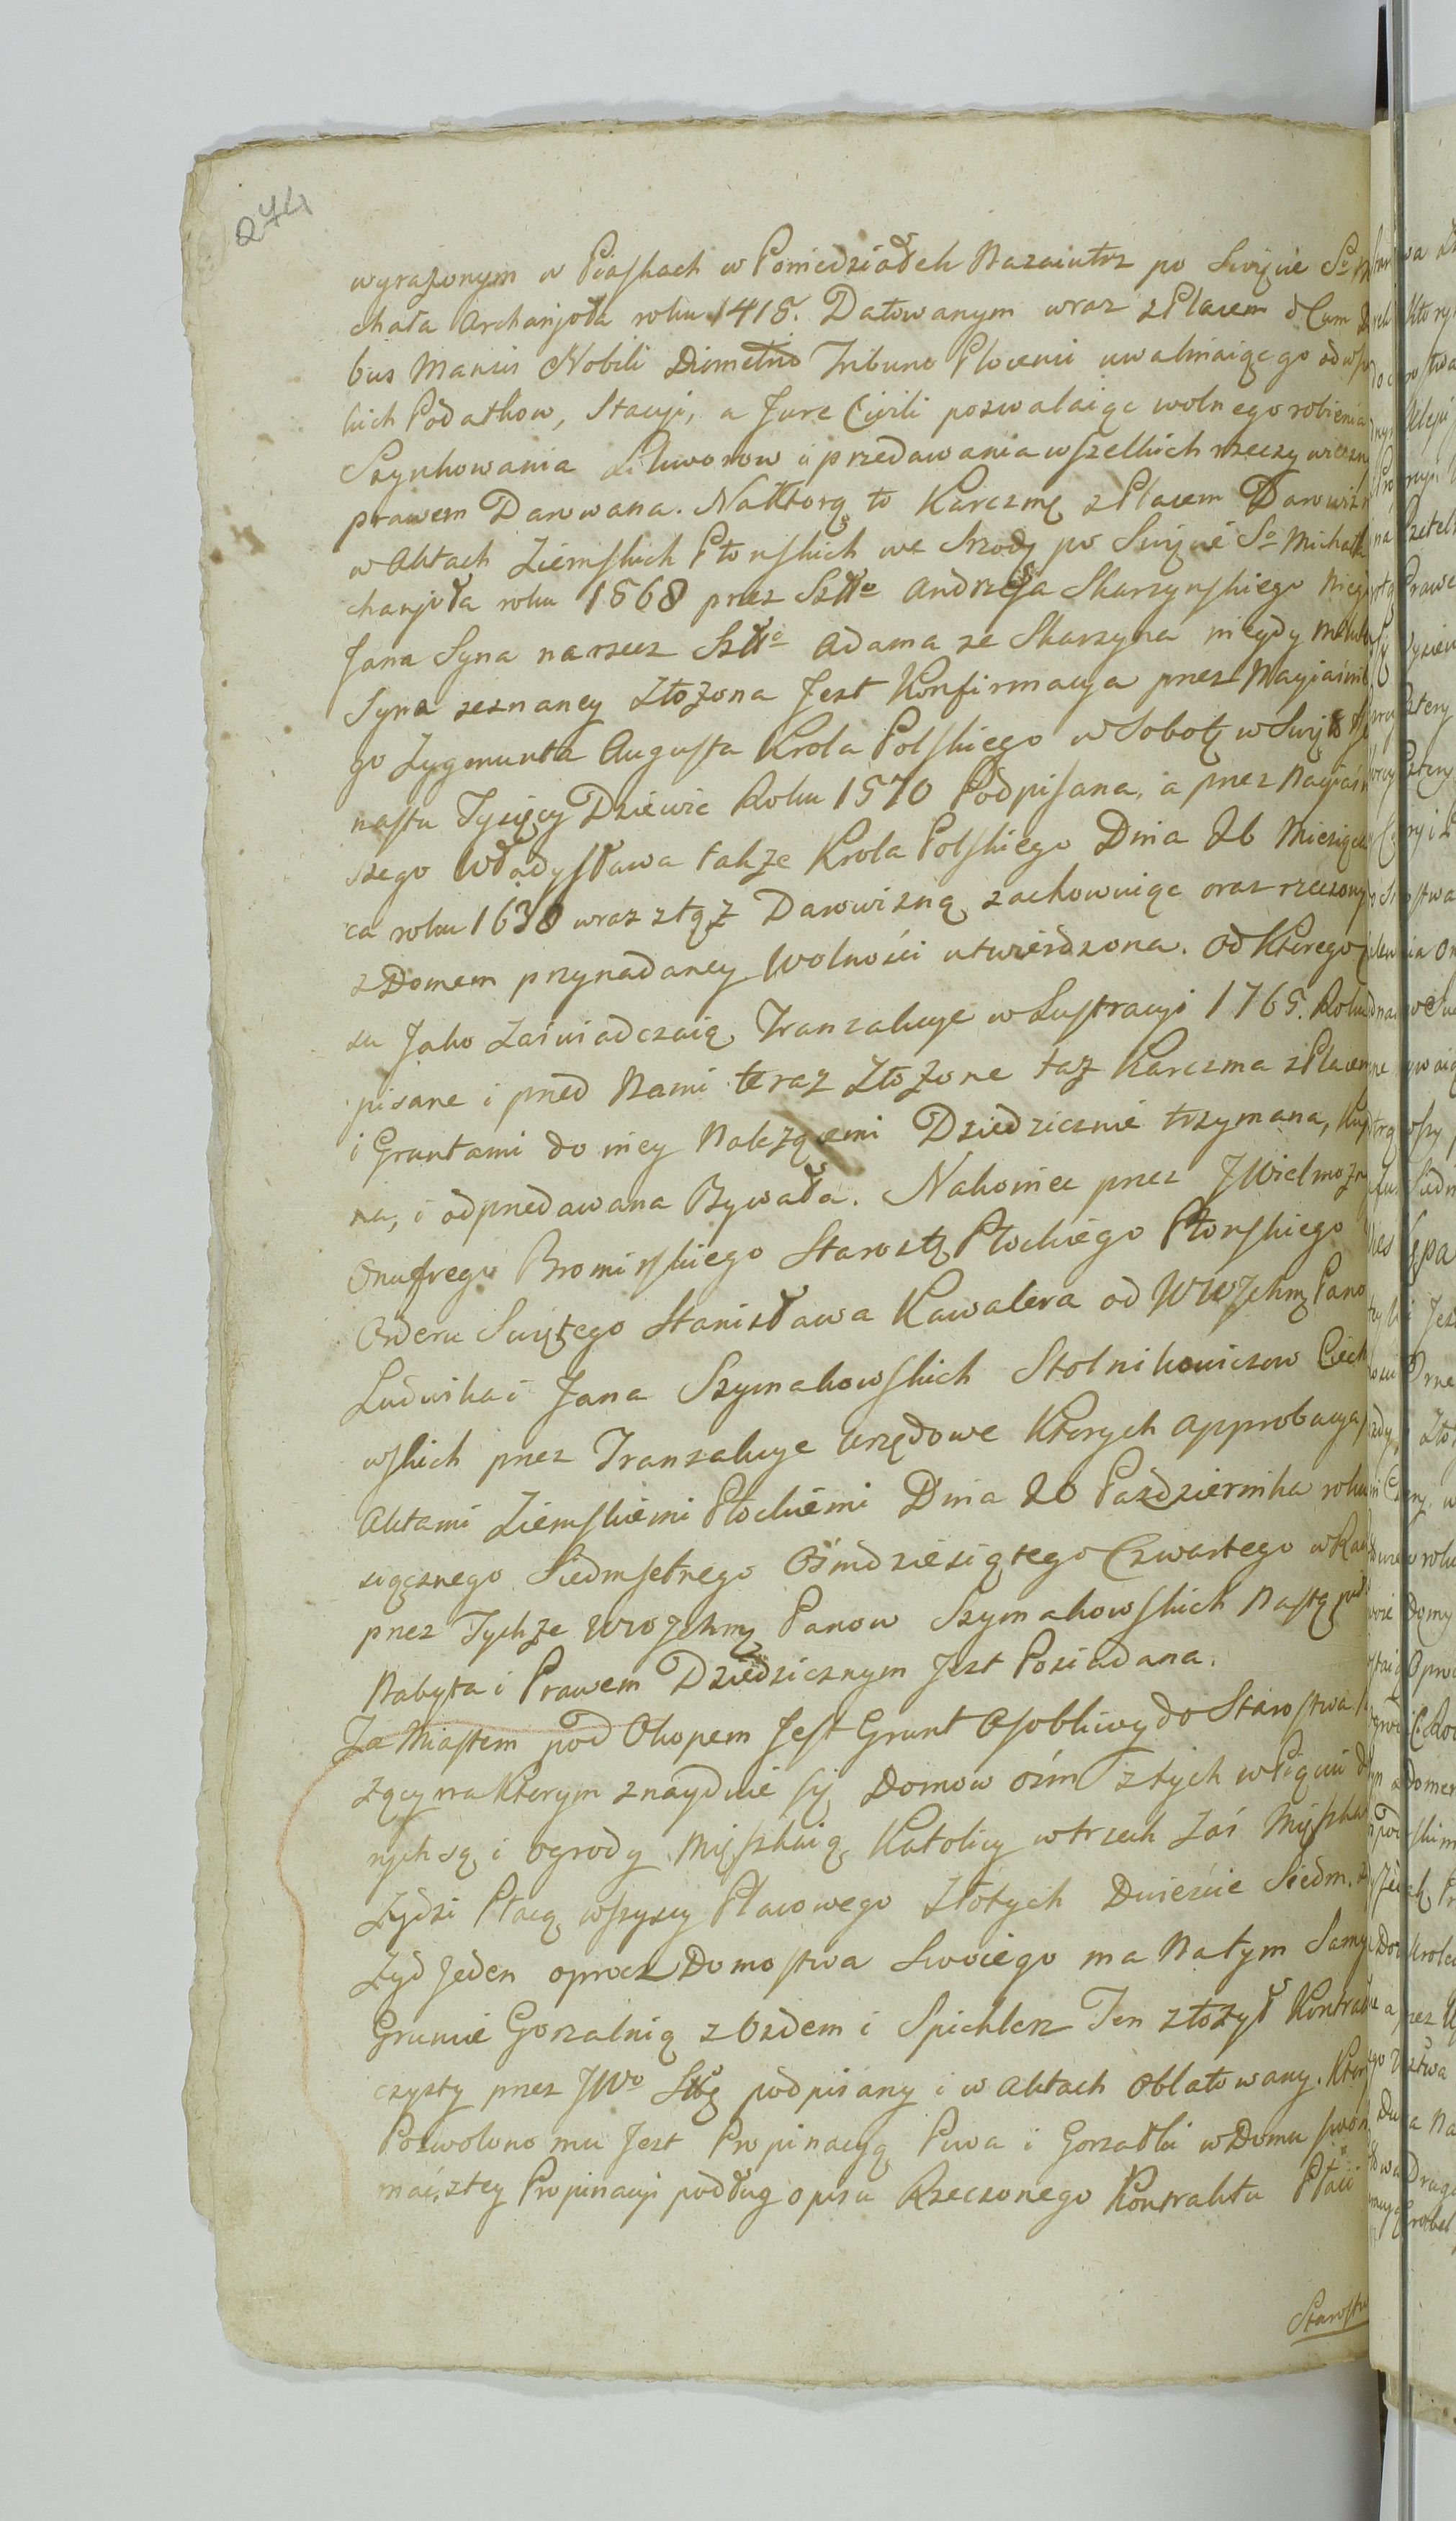 274
wyrażonym w Piaskach w Poniedziałek Nazaiutrz po Swięcie So
chała Archanjoła roku 1418. Datowanym wraz z Placem Cum
bus Mansis Nobili Tribuno Plocensi uwalniaiąc go od
kich Podatkow, Stacyi, a Jure Civili pozwalaiąc wolnego robienia
Szynkowania Likworow i przedawania wszelkich rzeczy
prawem Darowana. Na ktorą to Karczmę z Placem
w Aktach Ziemskich Płonskich we Srzodę po Swięcie So Micha
chanjoła roku 1568 przez Szlo Andrzeja Skarzynskiego
Jana Syna na rzecz Szlo Adama ze Skarzyna niegdy
Syna zeznaney złożona Jest Konfirmacya przez Nayiaśni
go Zygmunta Augusta Krola Polskiego w Sobotę w Swięto
nastu Tysięcy Dziewic Roku 1570 Podpisana, a przez Nayiaśn
szego Władysława także Krola Polskiego Dnia 26 Miesiąca
ca roku 1638 wraz z tąż Darowizną zachowuiąc oraz rzeczony
z Domem przynadaney Wolności utwierdzona. Od Ktorego
su Jako zaświadczaią Tranzakcye w Lustracyi 1765. Roku
pisane i przed Nami teraz Złożone taż Karczma z Placem
i Gruntami do niey Należącemi Dziedzicznie trzymana,
na, i odprzedawana Bywała. Nakoniec przez JWielmożn
Onufrego Bromirskiego Starostę Płockiego Płonskiego
Orderu Swiętego Stanisława Kawalera od WWJchmę Pano
Ludwika i Jana Szymakowskich Stolnikowiczow Ciech
wskich przez Tranzakcye urzędowe Ktorych approbacya
Aktami Ziemskiemi Płockiemi Dnia 20 Października roku
siącznego Siedmsetnego Ośmdziesiątego Czwartego w
przez Tychże WWJchmę Panow Szymakowskich
Nabyta i Prawem Dziedzicznym Jest Posiadana.
Za Miastem pod Okopem Jest Grunt Osobliwy do Starostwa
żący na Ktorym znayduie się Domow ośm z tych w Piąciu
nych są i ogrody Mięszkaią Katolicy w trzech Zaś Mięszka
Żydzi Płacą wszyscy Placowego Złotych Dwieście Siedm.
Żyd Jeden oprocz Domostwa Swoiego ma Na tym Samy
Gruncie Gorzalnią z Ozdem i Spichlerz Ten złożył Kontrak
czysty przez JWo Stę podpisany i w Aktach Oblatowany.
Pozwolono mu Jest Propinacyą Piwa i Gorzałki w Domu
mać, z tey Propinacyi podług opisu Rzeczonego Kontraktu
Starostw